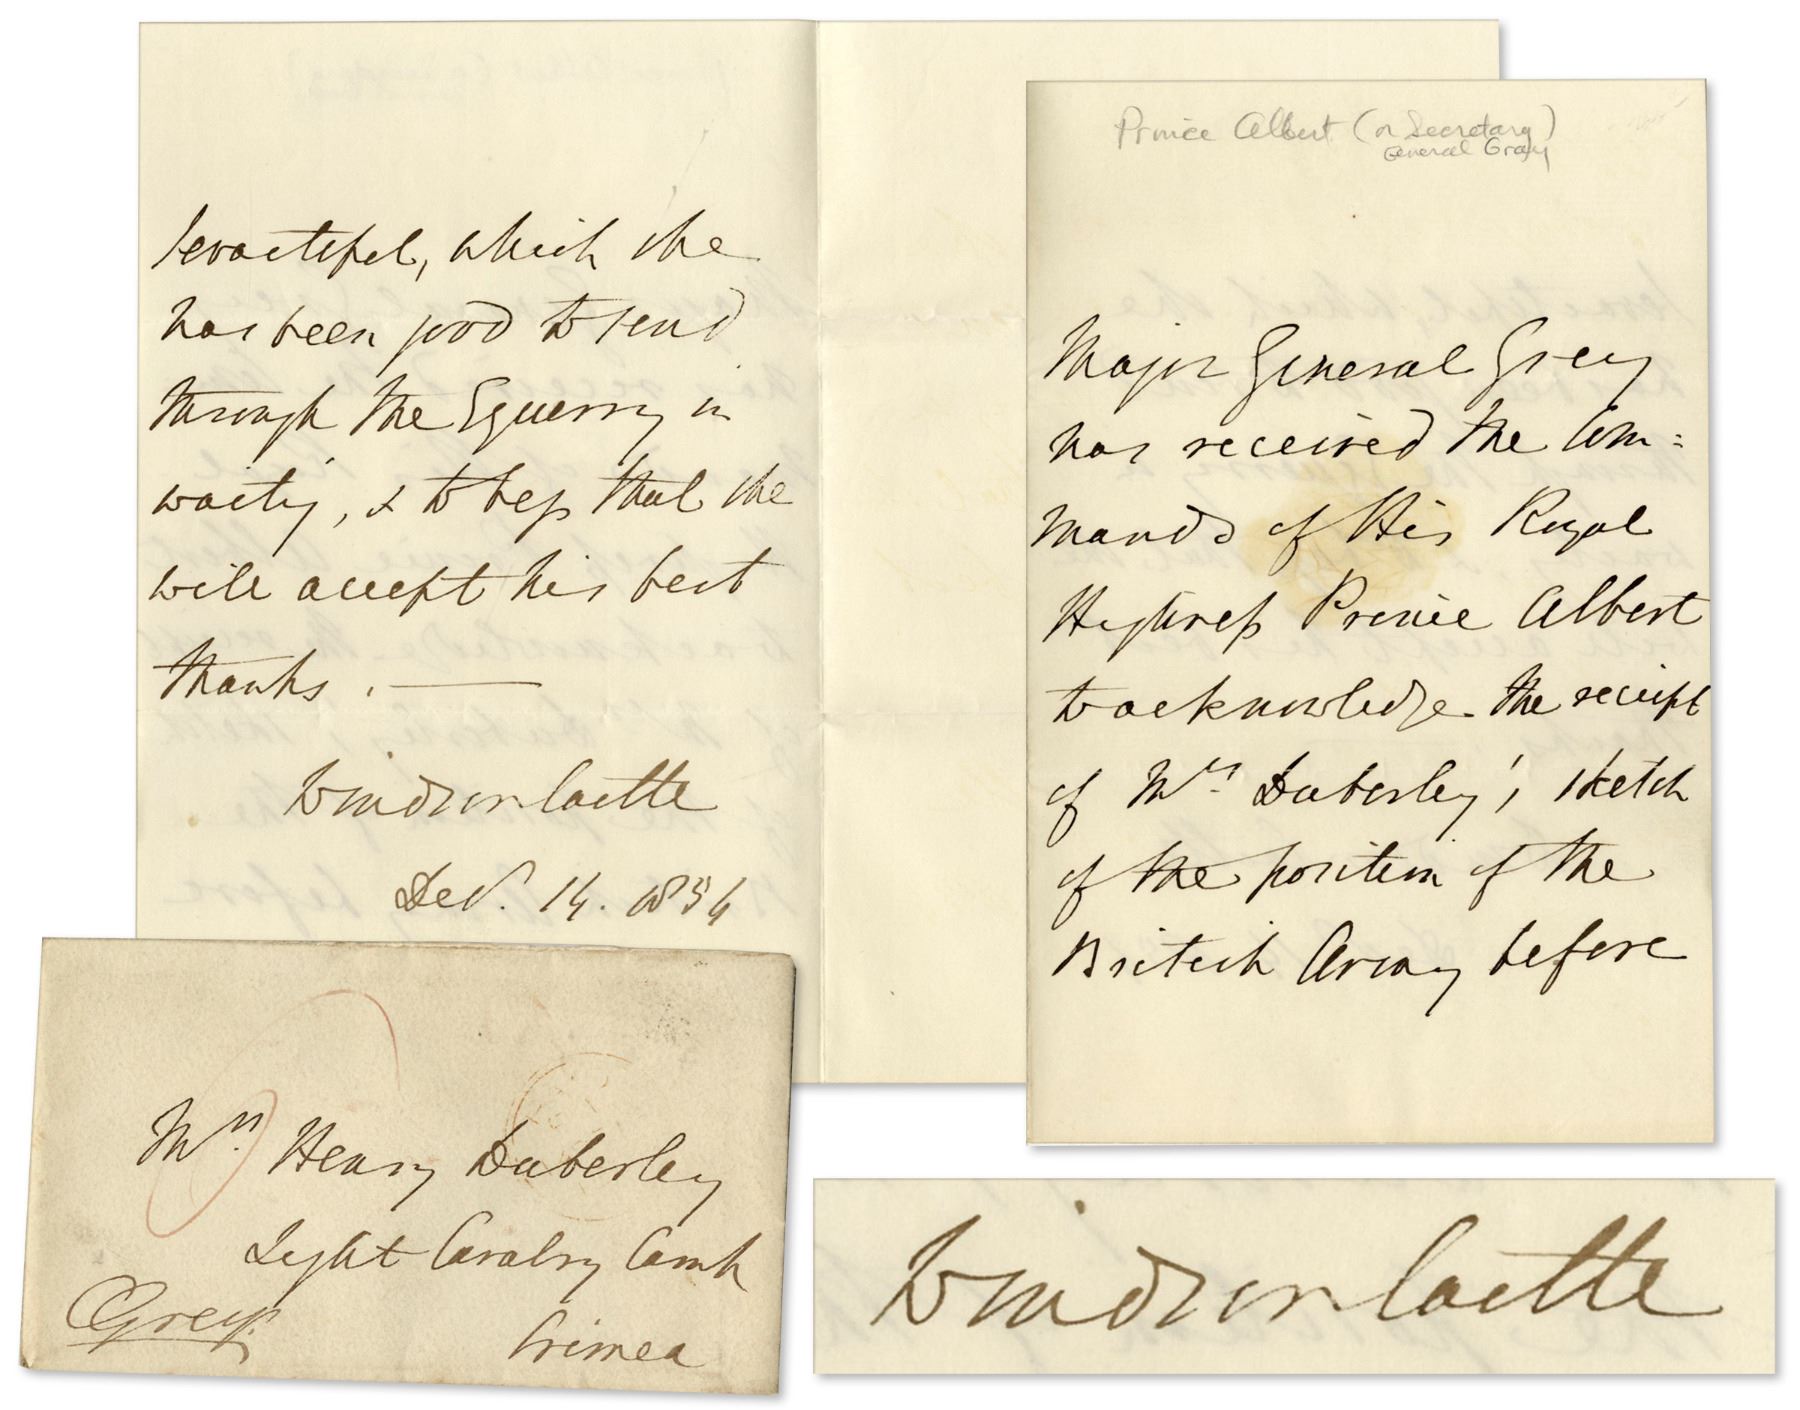 Prince Albert (or Secretary)
General Gray
Major General Grey
has received the Com=
mands of His Royal
Highness Prince Albert
to acknowledge the receipt
of Mrs. Duberley's sketch
of the position of the
British Army before
Sevastopol, which she
has been good to send
through the Equerry in
waiting, & to beg that she
will accept his best
thanks. —
Windsor Castle
Dec. 14. 1854
Mrs. Henry Duberley
Light Cavalry Camp
Crimea
CGrey.
Windsor Castle